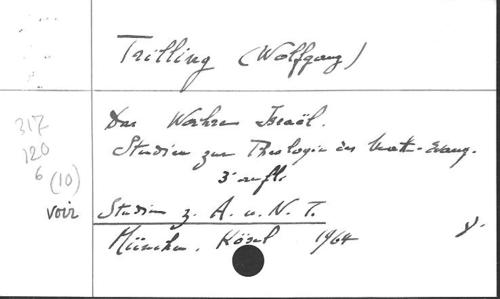 Trilling (Wolfgang)
317
120
6 (10)
Das Wahre Israël.
Studien zur Theologie des Matth-Evang.
3. Aufl.
voir Studien z. A. u. N. T.
München. Kösel 1964 y.